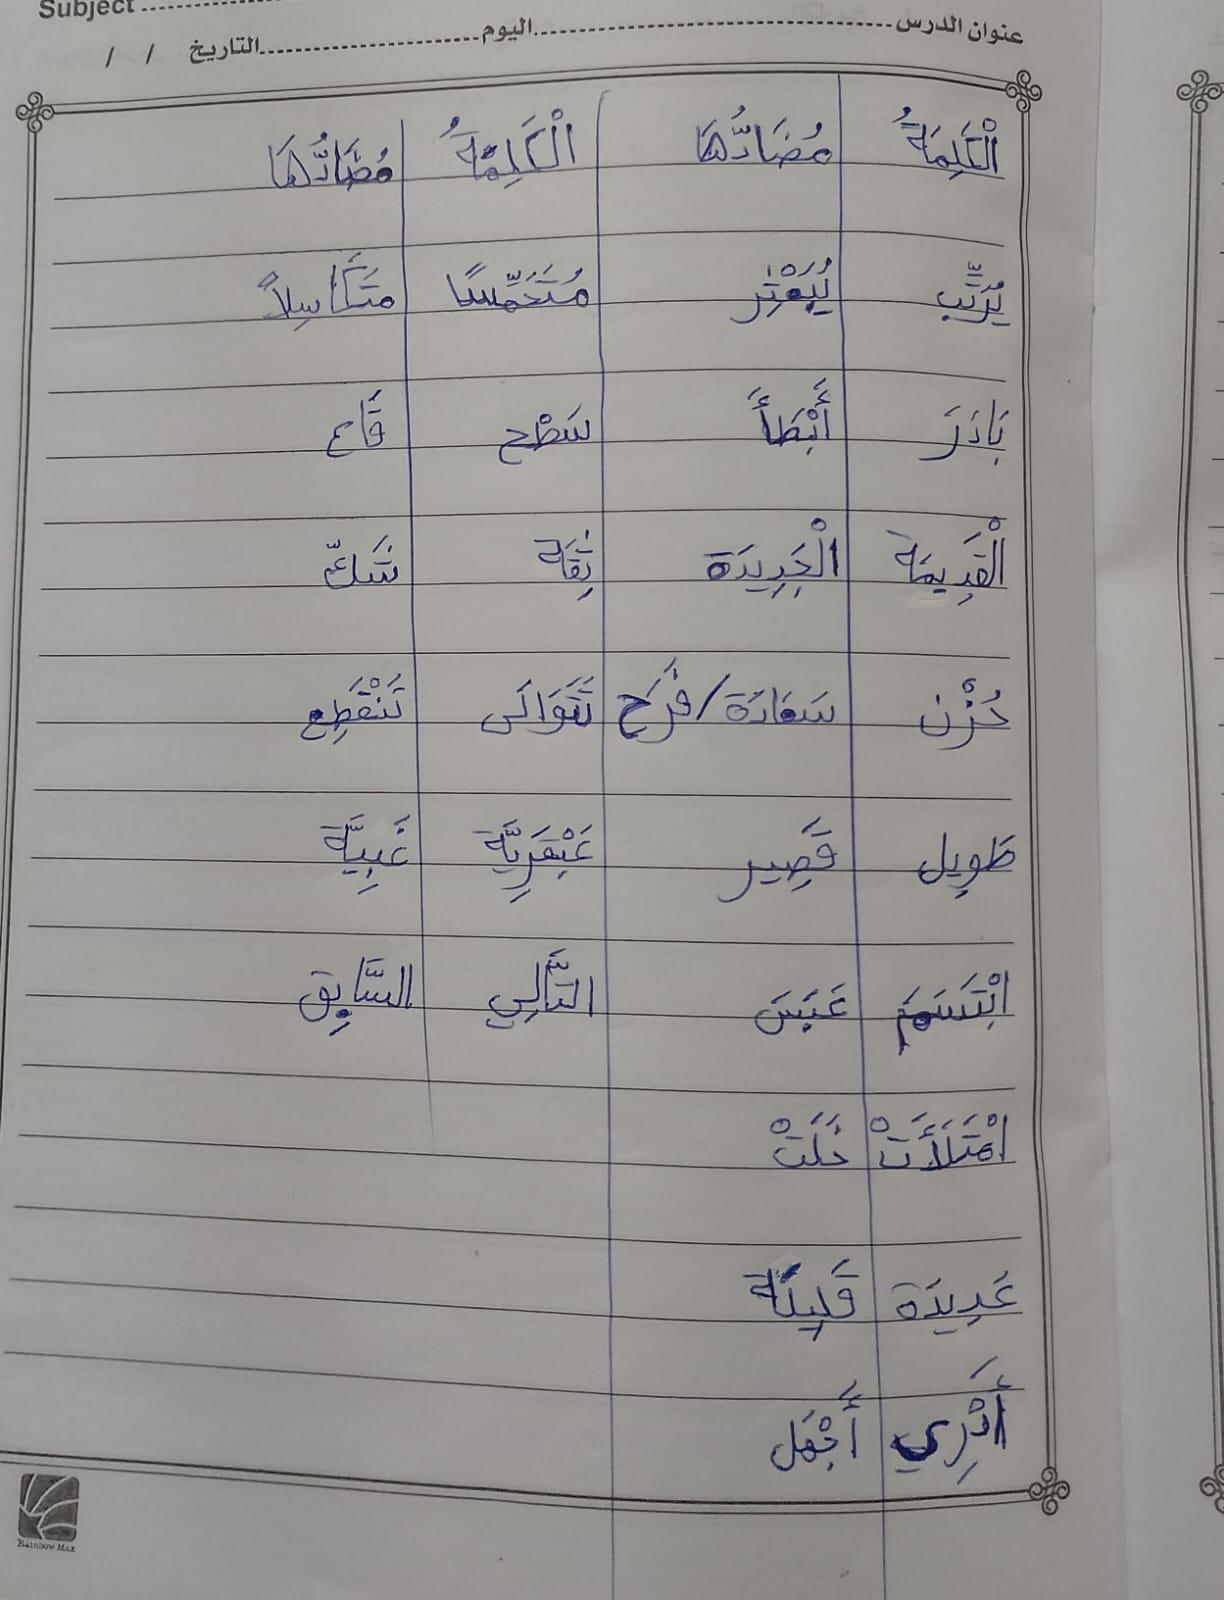 Subject
عنوان الدرس اليوم التاريخ / /
الْكَلِمَةُ مُضَادُّهَا الْكَلِمَةُ مُضَادُّهَا
يُرَتِّب يُبَعْثِر مُتَحَمِّسًا مُتَكَاسِلاً
بَادَرَ أَبْطَأَ سَطْح قَاع
الْقَدِيمَة الْجَدِيدَة ثِقَة شَكّ
حُزْن سَعَادَة / فَرَح تَتَوَالَى تَنْقَطِع
طَوِيل قَصِير عَبْقَرِيَّة غَبِيَّة
ابْتَسَمَ عَبَسَ التَّالِي السَّابِق
امْتَلَأَتْ خَلَتْ
عَدِيدَة قَلِيلَة
أَدْرِي أَجْهَل
Rainbow Max